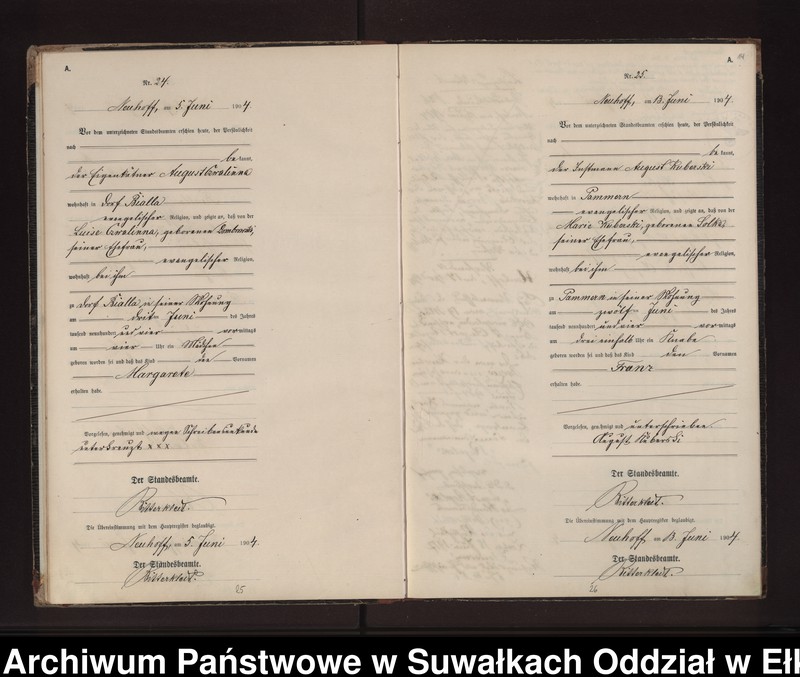 A.
Nr. 24.
Neuhoff, am 5. Juni 1904.
Vor dem unterzeichneten Standesbeamten erschien heute, der Persönlichkeit
nach
be kannt,
der Eigenkätner August
wohnhaft in Dorf Bialla
evangelischer Religion, und zeigte an, daß von der
Luise geborenen
seiner Ehefrau,
evangelischer Religion,
wohnhaft bei ihm
zu Dorf Bialla in seiner Wohnung
am dritten Juni des Jahres
tausend neunhundert und vier vor mittags
um vier Uhr ein Mädchen
geboren worden sei und daß das Kind die Vornamen
Margarete
erhalten habe.
Vorgelesen, genehmigt und wegen Schreibensunkunde
unterkreuzt x x x
Der Standesbeamte.
Die Übereinstimmung mit dem Hauptregister beglaubigt.
Neuhoff, am 5. Juni 1904.
Der Standesbeamte.
25
A.
Nr. 25.
Neuhoff, am 13. Juni 1904.
Vor dem unterzeichneten Standesbeamten erschien heute, der Persönlichkeit
nach
be kannt,
der Instmann August Kuberski
wohnhaft in Pammern
evangelischer Religion, und zeigte an, daß von der
Marie geborenen
seiner Ehefrau,
evangelischer Religion,
wohnhaft bei ihm
zu Pammern in seiner Wohnung
am zwölf Juni des Jahres
tausend neunhundert und vier vor mittags
um drei einhalb Uhr ein Knabe
geboren worden sei und daß das Kind den Vornamen
Franz
erhalten habe.
Vorgelesen, genehmigt und unterschrieben
August Kuberski
Der Standesbeamte.
Die Übereinstimmung mit dem Hauptregister beglaubigt.
Neuhoff, am 13. Juni 1904.
Der Standesbeamte.
26
Archiwum Państwowe w Suwałkach Oddział w Ełk